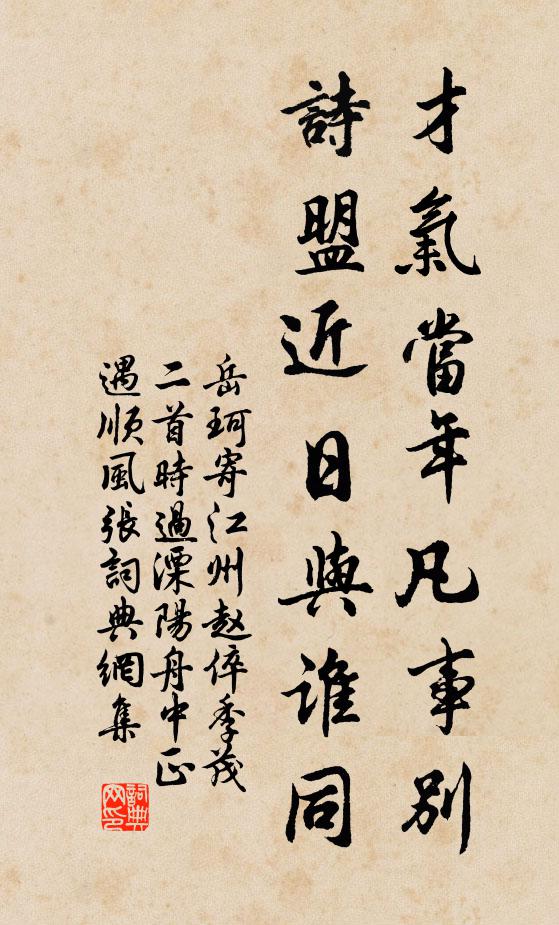 才氣當年凡事別
詩盟近日與誰同
岳珂寄江州赵倅季茂
二首時過溧陽舟中正
遇順風張詞典網集
詞典
网印